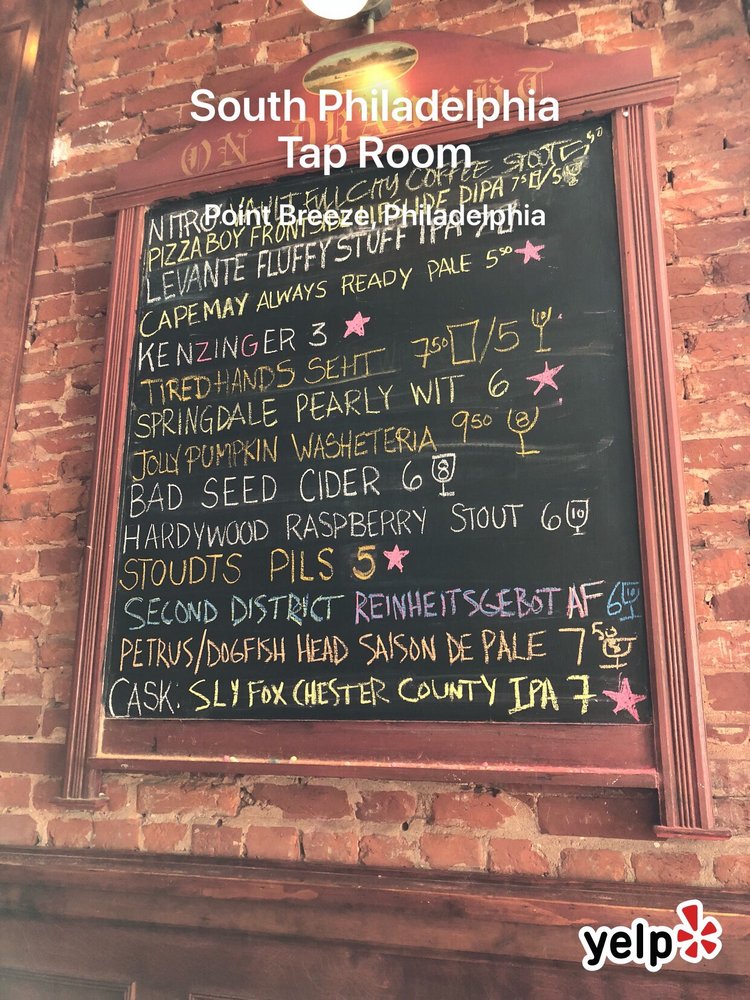 South Philadelphia
Tap Room
ON DRAUGHT
Point Breeze, Philadelphia
NITRO: VAULT FULL CITY COFFEE STOUT
PIZZA BOY FRONTSIDE DIPA 7⁵⁰/5
LEVANTE FLUFFY STUFF IPA
CAPE MAY ALWAYS READY PALE 5⁵⁰
KENZINGER 3
TIRED HANDS SEHT 7⁵⁰/5 10
SPRINGDALE PEARLY WIT 6
JOLLY PUMPKIN WASHETERIA 9⁵⁰ 8
BAD SEED CIDER 6 8
HARDYWOOD RASPBERRY STOUT 6 10
STOUDTS PILS 5
SECOND DISTRICT REINHEITSGEBOT AF 6 10
PETRUS/DOGFISH HEAD SAISON DE PALE 7⁵⁰
CASK: SLY FOX CHESTER COUNTY IPA 7
yelp